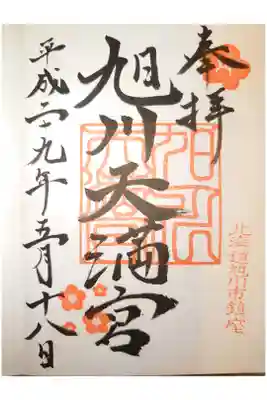 奉拝
旭川天満宮
平成二十九年五月十八日
北海道旭川市鎮座